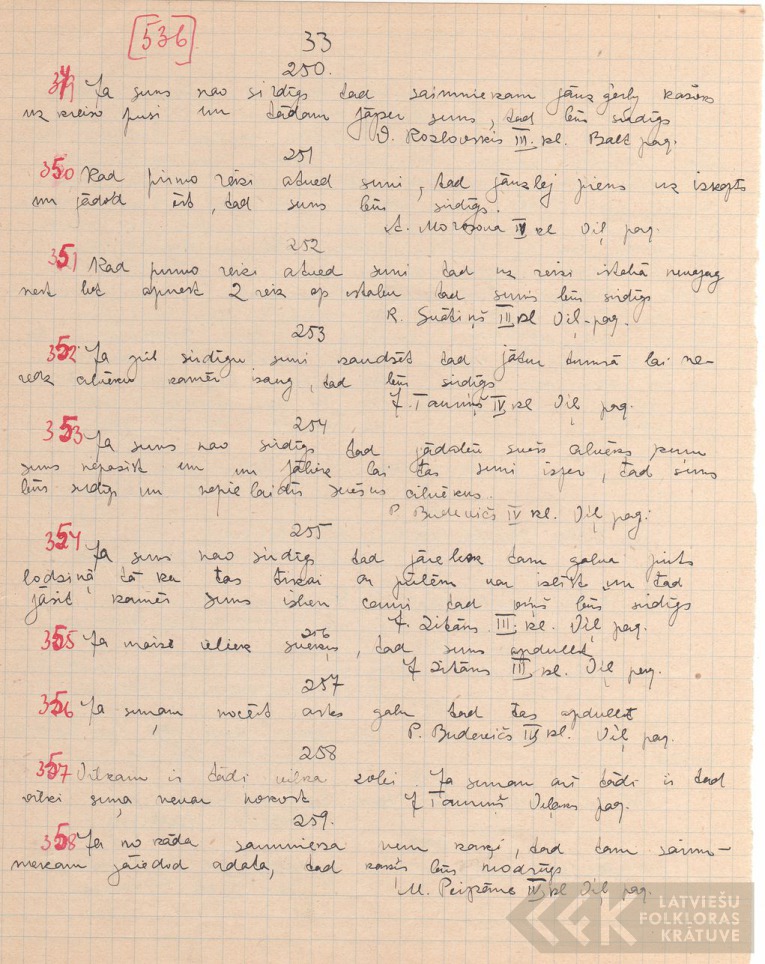 [536]
33
250.
349 Ja suns nav sirdīgs tad saimniekam jāuzģērbj kažoks
uz kreiso pusi un tādam jāper suns, tad būs sirdīgs
Kozlovskis III. kl. Balt pag.
251
350 Kad pirmo reizi atved suni, tad jāuzlej piens uz izkapts
un jādod ēst, tad suns būs sirdīgs.
A. Morozova IV kl Viļ pag.
252
351 Kad pirmo reizi atved suni tad uz reizi istabā nevajag
nest bet apnest 2 reiz ap istabu tad suns būs sirdīgs
R. III kl Viļ-pag.
253
352 Ja grib sirdīgu suni izaudzēt tad jātur tumsā lai ne-
redz cilvēku kamēr izaug, tad būs sirdīgs
J. Tauriņš IV kl Viļ pag.
254
353 Ja suns nav sirdīgs tad jādabū svešs cilvēks kuru
suns nepazīst un un jāliek lai tas suni izper, tad suns
būs sirdīgs un nepielaidīs svešus cilvēkus.
P. Budevičs IV kl. Viļ pag.
255
354 Ja suns nav sirdīgs tad jāieliek tam galva pirts
lodziņā tā ka tas tikai ar pūlēm var izlīst un tad
jāsit kamēr suns izķer cauri tad viņš būs sirdīgs
J. Zitāns. III. kl. Viļ pag.
256
355 Ja maizē ieliek sveķis, tad suns apdullst
J Zitāns III kl. Viļ pag.
257
356 Ja suņam nocērt astes galu tad tas apdullst
P. Budevičs IV kl. Viļ pag.
258
357 Vilkam ir tādi vilka zobi. Ja sunam arī tādi ir tad
vilki suņa nevar nokost
J Tauriņš Viļakas pag.
259.
358 Ja no kāda saimnieka ņem kaķi, tad tam saim-
niekam jāiedod adata, tad kaķis būs modrīgs
M. IV kl Viļ pag.
LATVIEŠU
FOLKLORAS
KRĀTUVE